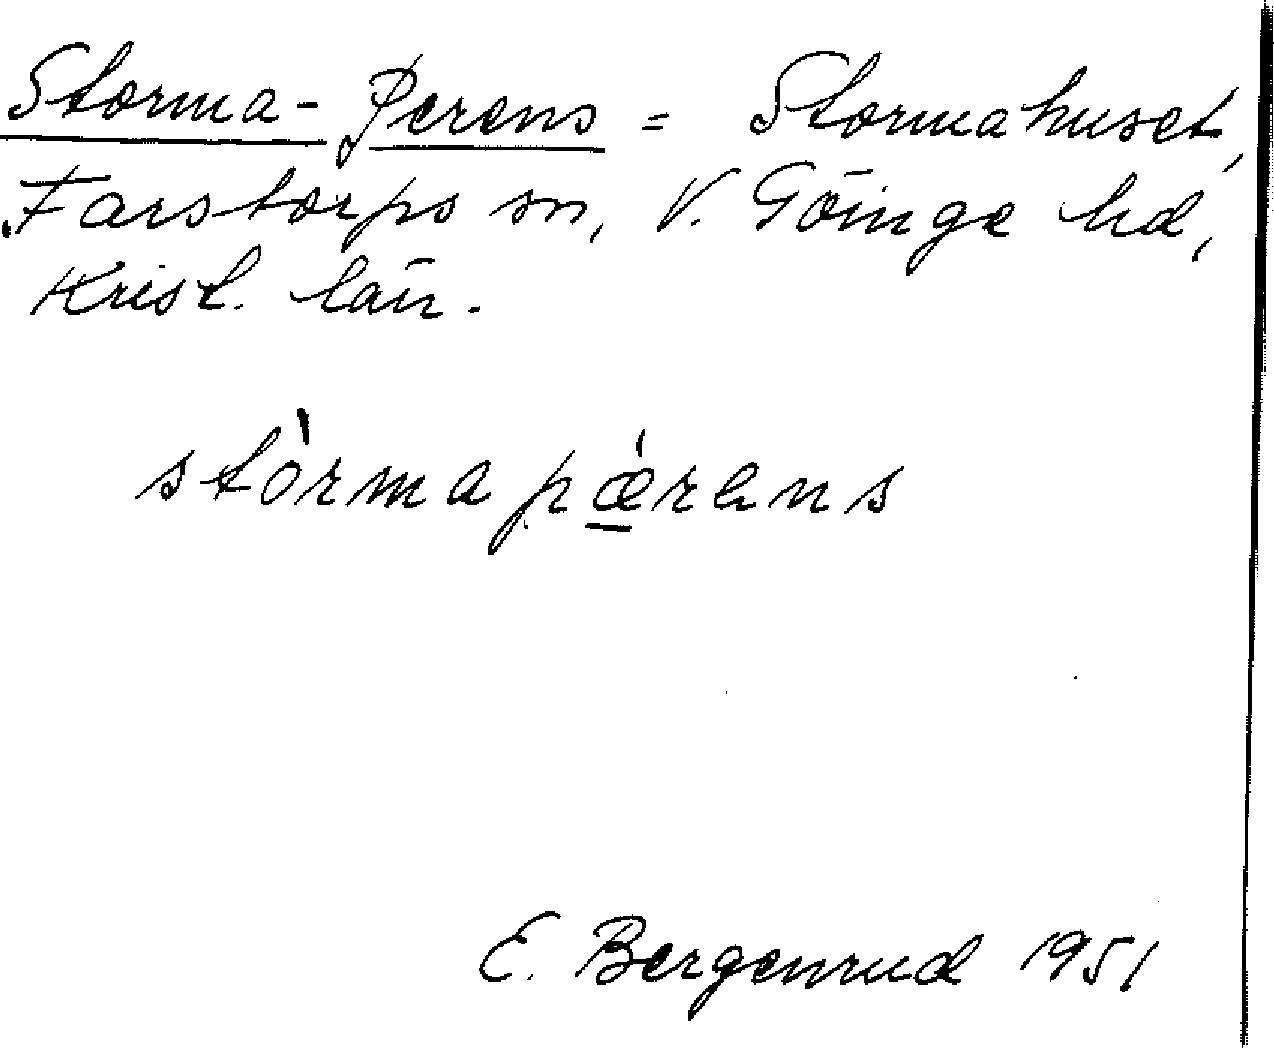 Storma-Perens = Stormahuset,
Farstorps sn, V. Göinge hd,
Krist. län.
stòrmapǽ̱rens
E. Bergenrud 1951